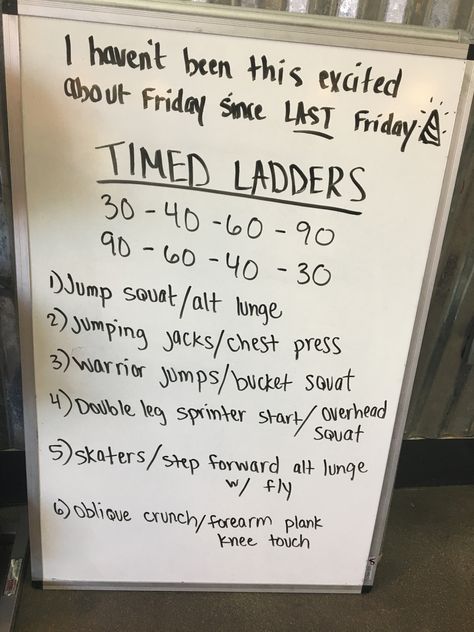 I haven't been this excited
about Friday since LAST Friday
TIMED LADDERS
30 - 40 - 60 - 90
90 - 60 - 40 - 30
1) Jump squat/alt lunge
2) Jumping jacks/chest press
3) Warrior jumps/bucket squat
4) Double leg sprinter start/overhead
squat
5) skaters/step forward alt lunge
w/ fly
6) Oblique crunch/forearm plank
knee touch